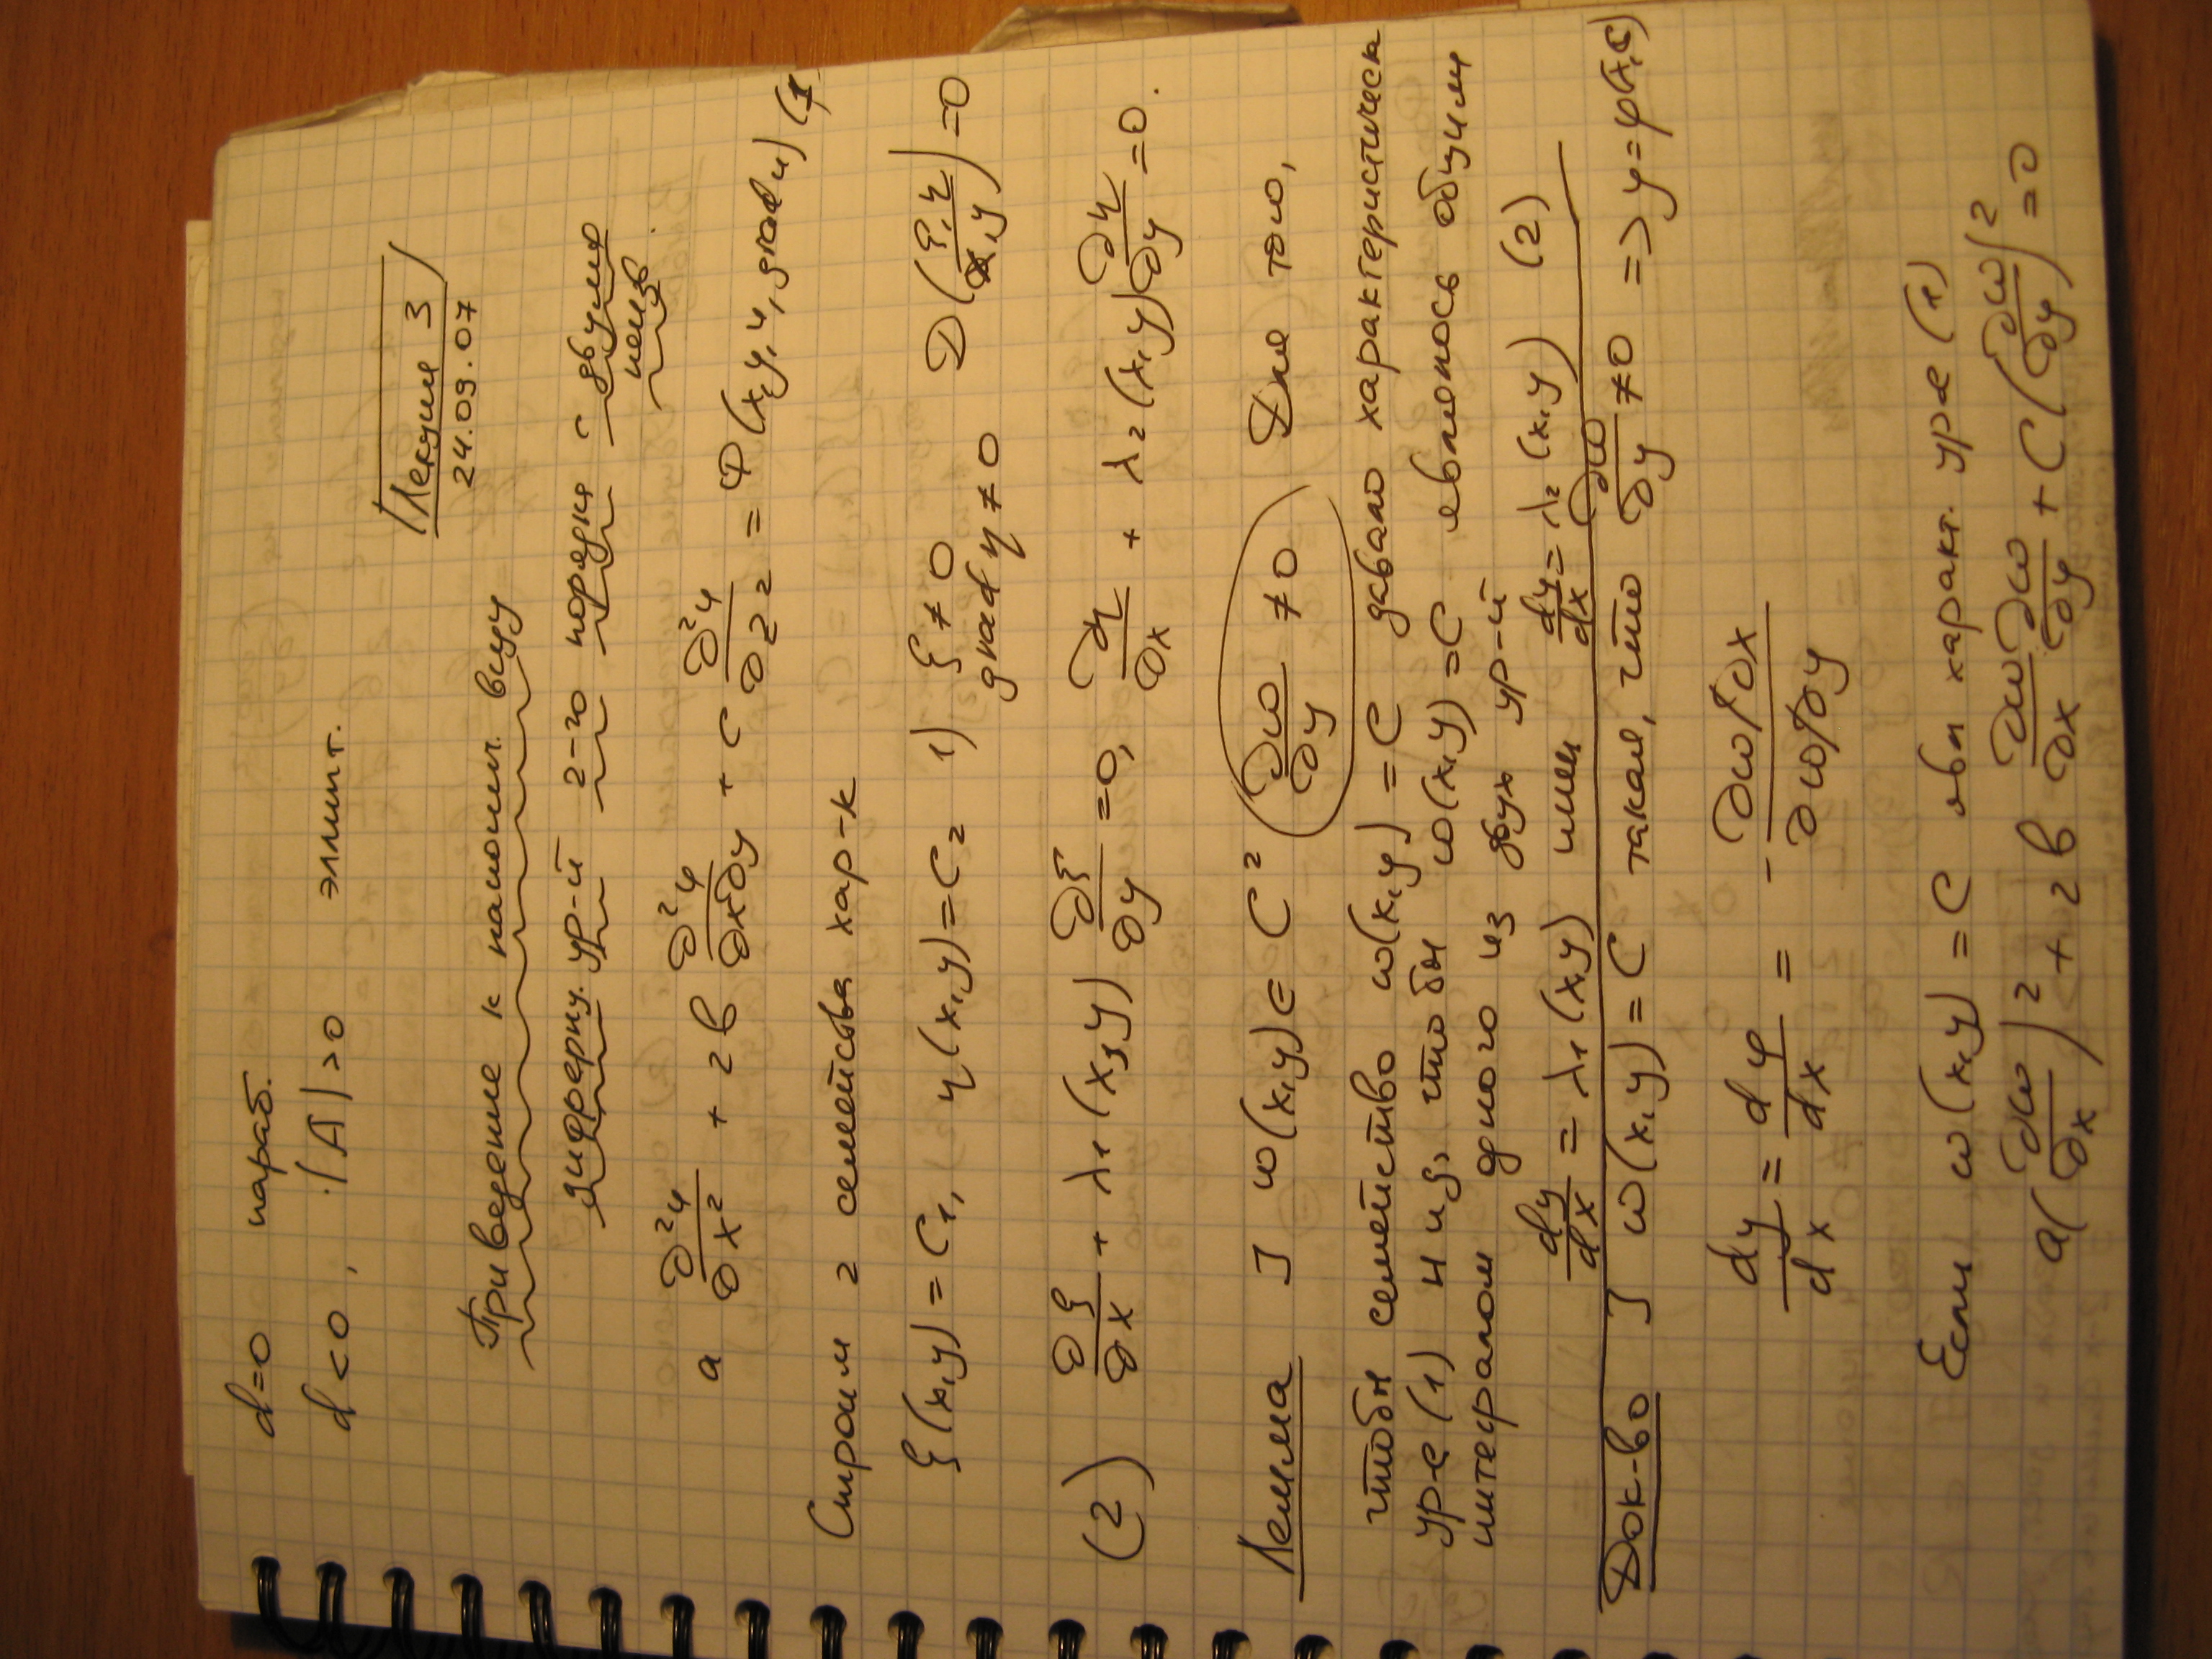 d=0 параб.
d<0, |A|>0 эллипт.
Лекция 3
24.09.07
Приведение к канонич. виду
дифференц. ур-й 2-го порядка с двумя
незав.
a ∂²u/∂x² + 2b ∂²u/∂x∂y + c ∂²u/∂z² = Φ(x,y,u,grad u) (1)
Строим 2 семейства хар-к
ξ(x,y)=C₁, η(x,y)=C₂ 1) ξ≠0 D(ξ,η/x,y)=0
grad η≠0
(2) ∂ξ/∂x + λ₁(x,y)∂ξ/∂y=0, ∂η/∂x + λ₂(x,y)∂η/∂y=0.
Лемма ] ω(x,y)∈C² (∂ω/∂y ≠0) Для того,
чтобы семейство ω(x,y)=C давало характеристич
ур-е (1) н и д, чтобы ω(x,y)=C являлось общим
интегралом одного из двух ур-й
dy/dx=λ₁(x,y) или dy/dx=λ₂(x,y) (2)
Док-во ] ω(x,y)=C такая, что ∂ω/∂y≠0 => y=φ(x,c)
dy/dx = dφ/dx = - ∂ω/∂x / ∂ω/∂y
Если ω(x,y)=C явл характ. уре (1)
a(∂ω/∂x)² + 2b ∂ω/∂x ∂ω/∂y + C(∂ω/∂y)²=0